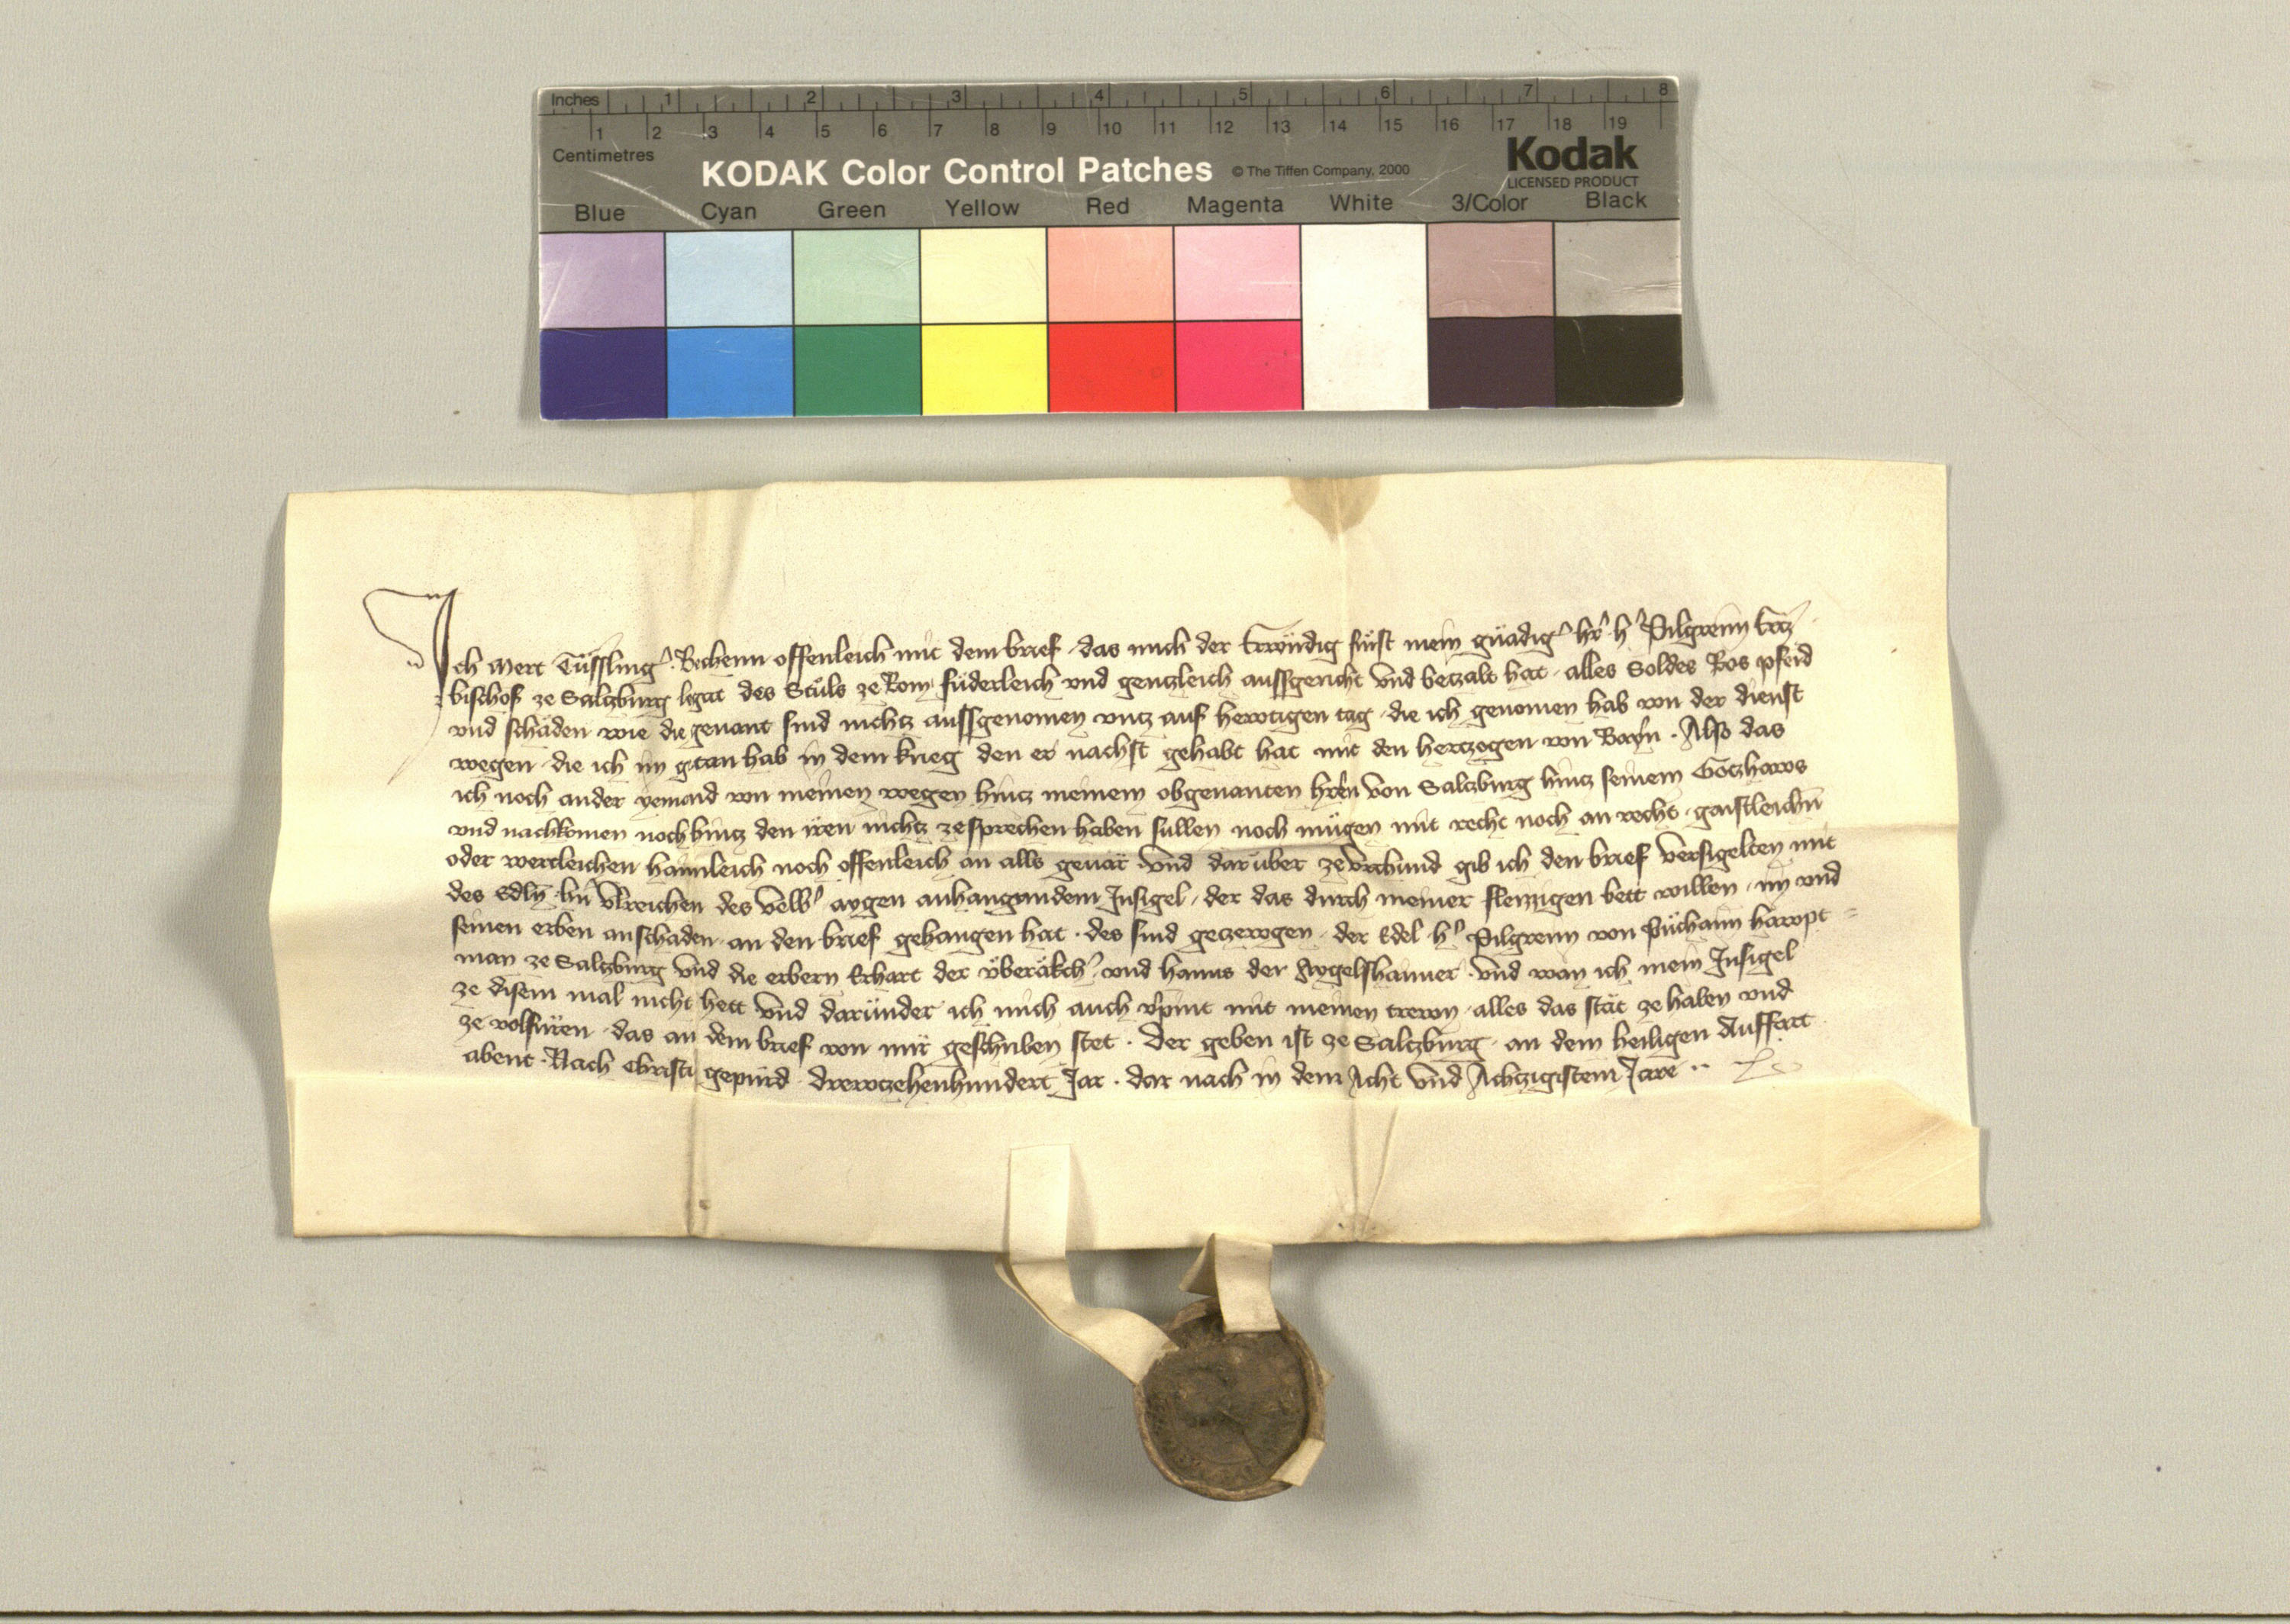 Inches 1 2 3 4 5 6 7 8
1 2 3 4 5 6 7 8 9 10 11 12 13 14 15 16 17 18 19
Centimetres
KODAK Color Control Patches © The Tiffen Company, 2000 Kodak
LICENSED PRODUCT
Blue Cyan Green Yellow Red Magenta White 3/Color Black
Ich Mert Tüssling᾽ · Bechenn offenleich mit dem brief · das mich der Erwirdig fürst mein gnädig᾽ h᾽r h᾽ Pilgreim Ertz
bischof ze Saltzburg legat des Stuls ze Rom · füderleich vnd gentzleich aussgericht vnd betzalt hat · alles Soldes Ros pferd
vnd schäden wie die genant sind nichtz aussgenomen vntz auf hewtigen tag · die ich genomen hab von der dienst
wegen · die ich im getan hab in dem krieg den er nachst gehabt hat mit den hertzogen von Bayrn · Also das
ich noch ander yemand von meinen wegen hintz meinem obgenanten h᾽ren von Saltzburg hintz seinem Gotzhaws
vnd nachkomen noch hintz den iren nichtz ze sprechen haben sullen noch mügen mit recht noch an recht · gaistleichn̄
oder wertleichen haimleich noch offenleich an alls geuär · Vnd darüber ze vrchund gib ich den brief versigelten mit
des Edln̄ h᾽n Vlreichen des Velb᾽ aygen anhangundem Insigel · der das durch meiner fleizzigen bett willen · im vnd
seinen erben an schaden · an den brief gehangen hat · des sind getzewgen · der Edel h᾽ Pilgreim von Püchaim hawpt=
man ze Saltzburg vnd die erbern Ekhart der Überäkch᾽ · vnd Hanns der Aygelshaimer · Vnd wan ich mein Insigel
ze disem mal nicht hett Vnd darunder ich mich auch v᾽pint mit meinen trewn · alles das stät ze haben vnd
ze volfüren · das an dem brief von mir geschriben stet · Der geben ist ze Saltzburg · an dem heiligen Auffart
abent · Nach Christi gepurd · drewtzehenhundert Jar · dar nach in dem Acht vnd Achtzigistem Jare ··